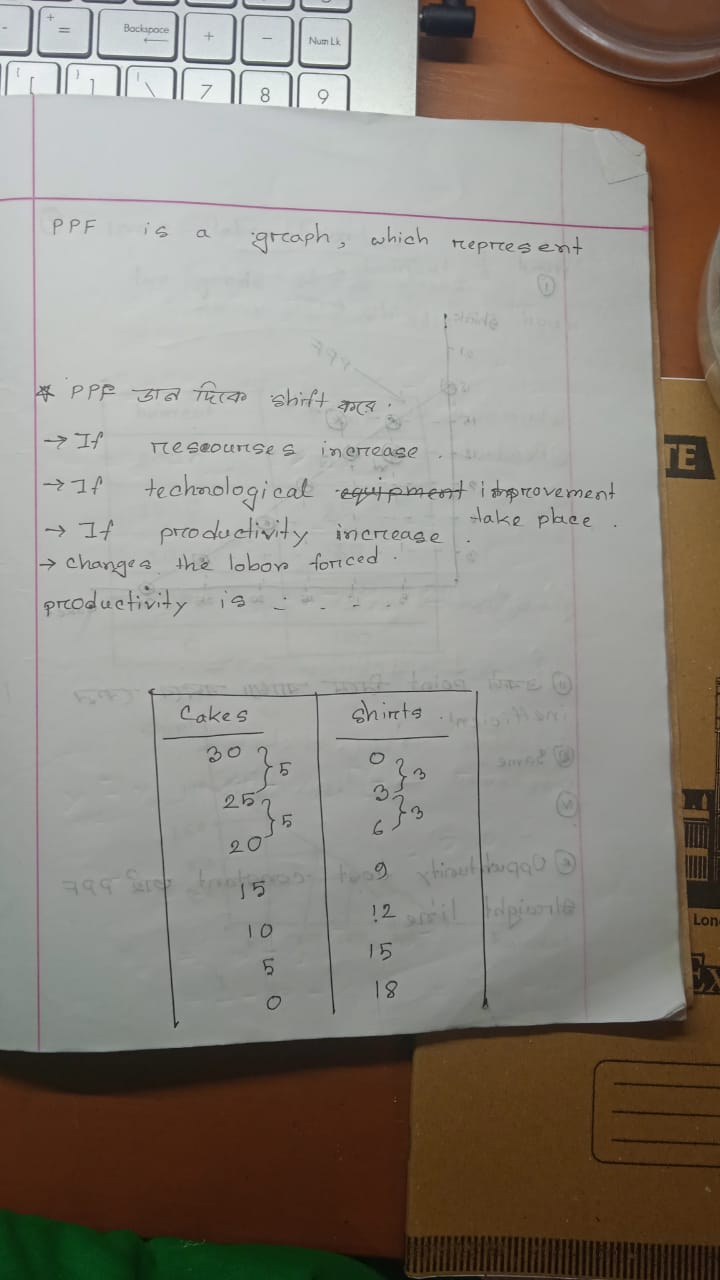 Backspace
+
=
+
-
Num Lk
{
[
}
]
|
\
7
8
9
PPF is a graph, which represent
* PPF ডান দিকে shift করে.
→ If resourses increase.
→ If technological equipment improvement take place.
→ If productivity increase.
→ changes the labor forced.
productivity is - . - .
Cakes shirts.
30 0
5 3
25 3
5 3
20 6
15 9
10 12
5 15
0 18
TE
Lon
Ex